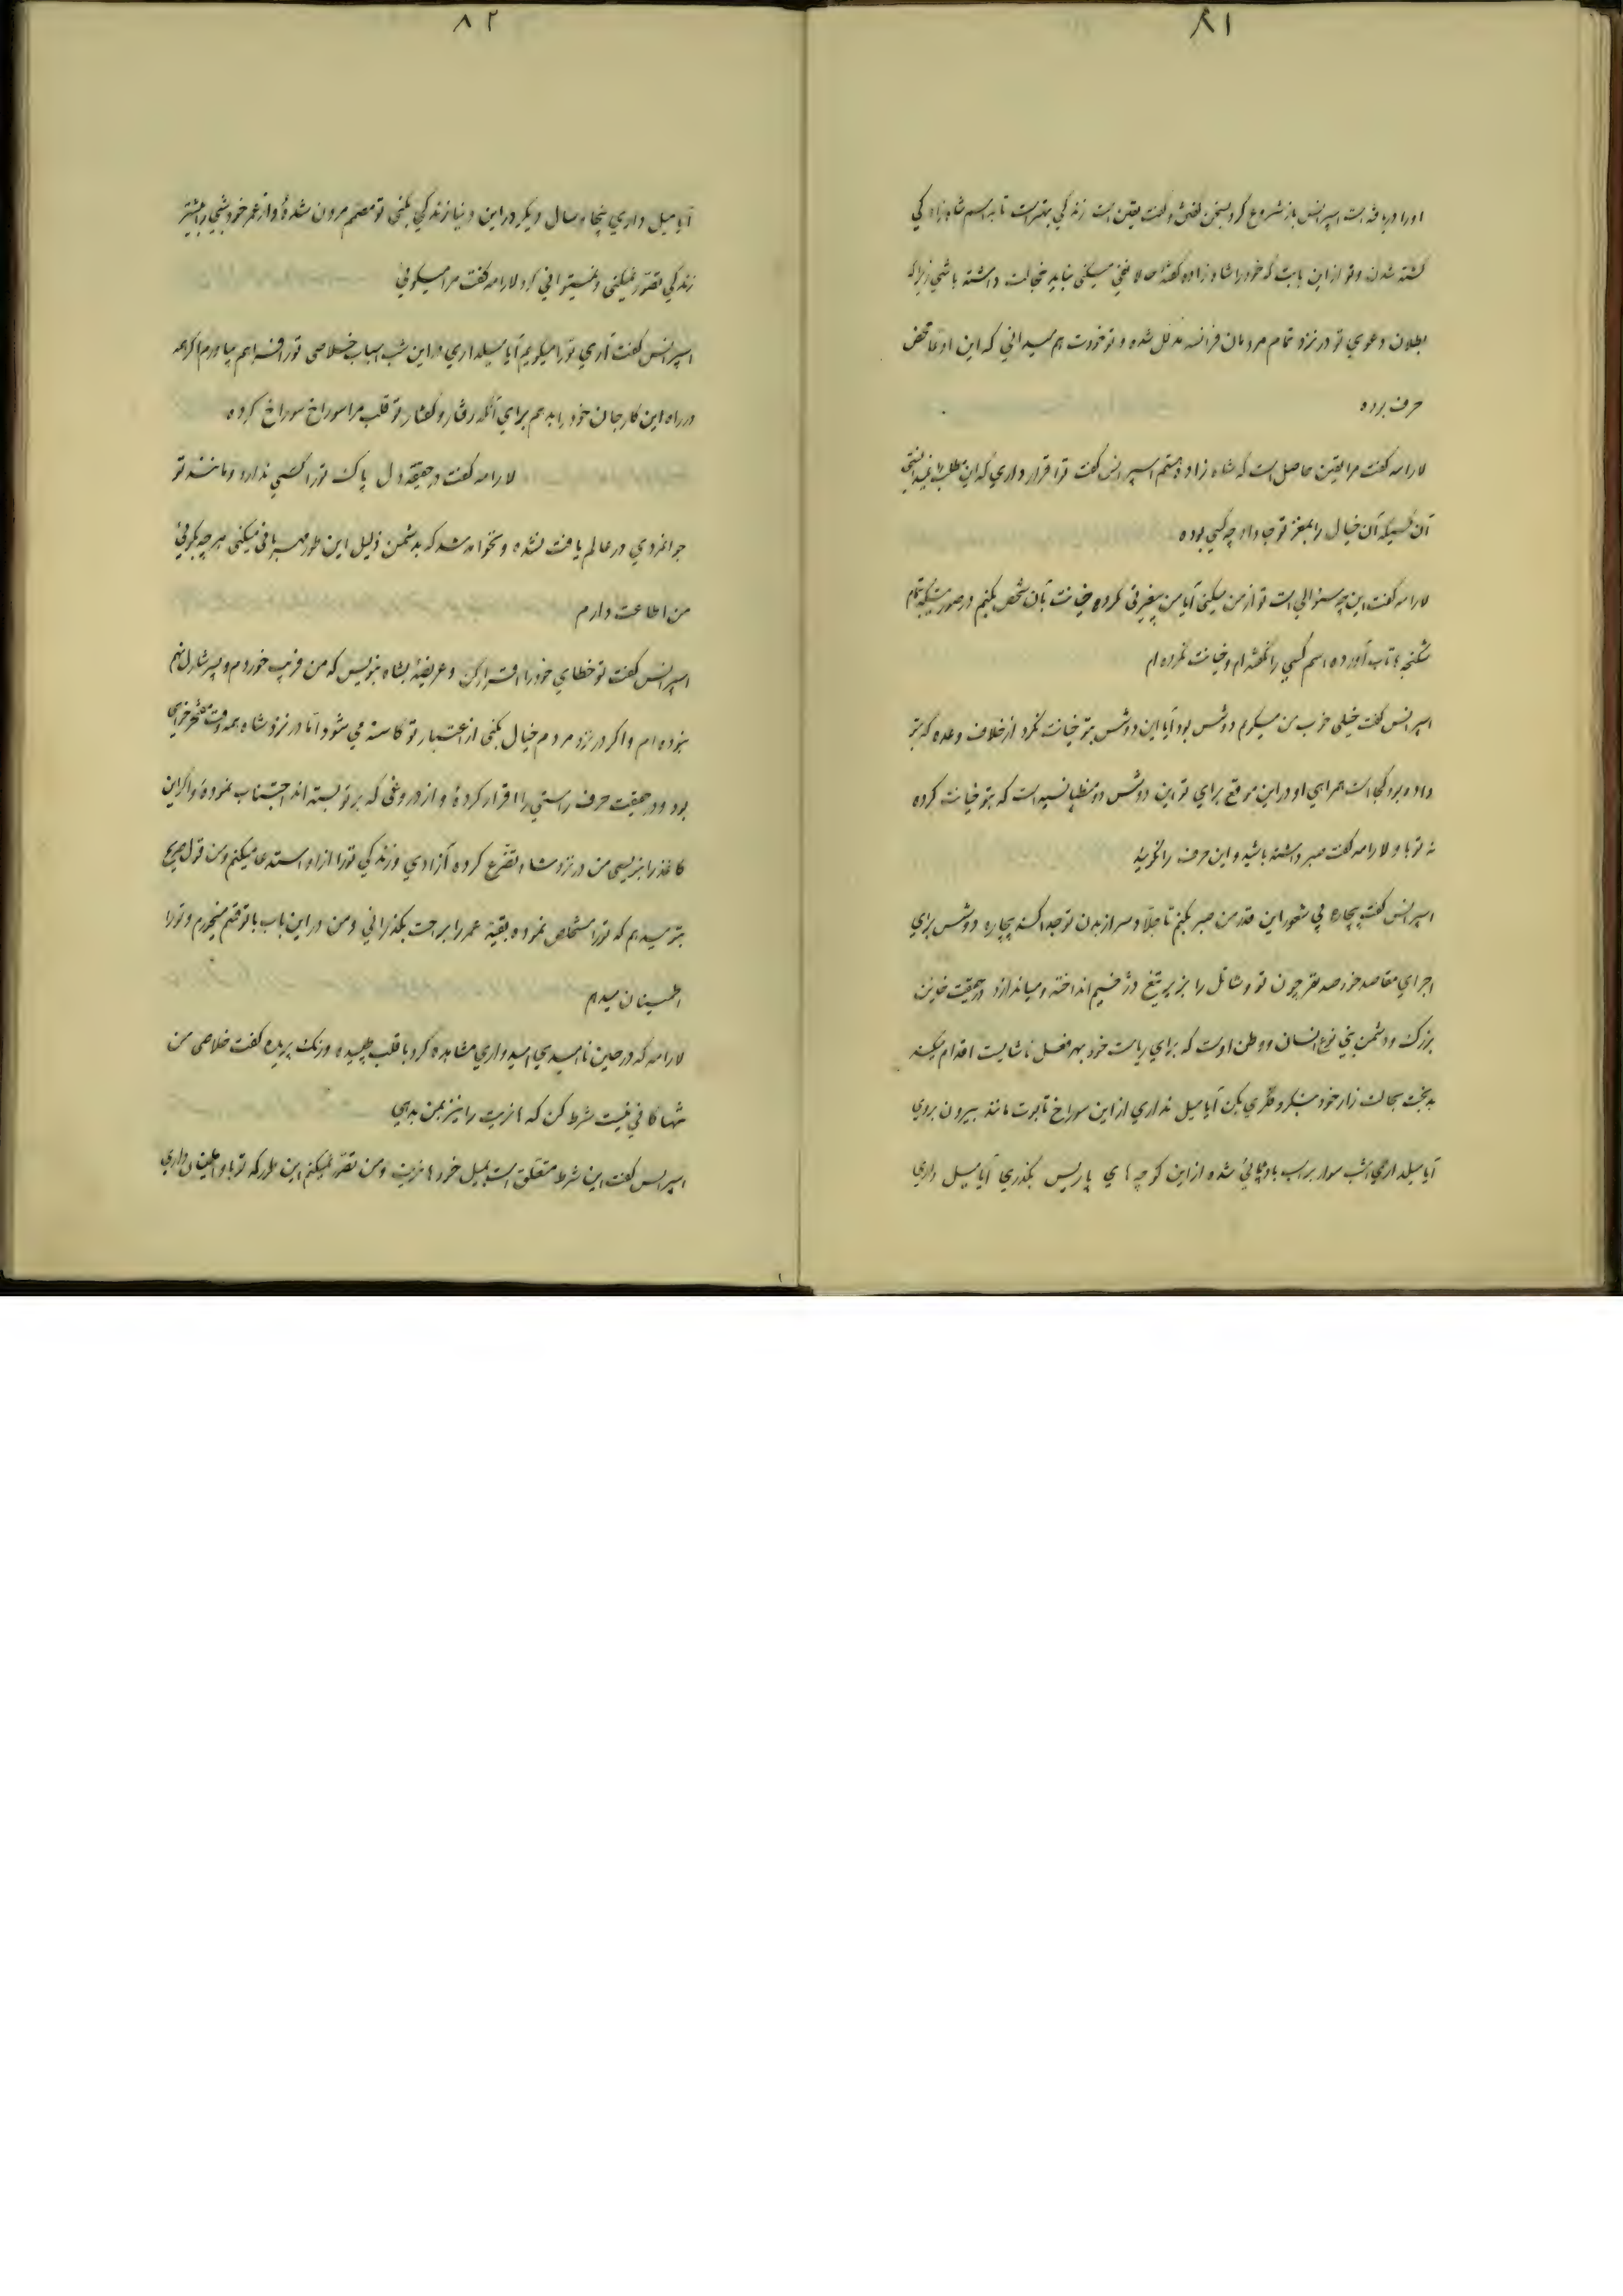 ۸۱
اورا دریافته است اسپرانس باز شروع کرد بسخن گفتن و گفت یقین است زندگی بهتر است تا به اسم شاهزاده کی
کشته شدن و تو از این بابت که خود را شاه زاده گفته حالا نفی میکنی نباید خجالت داشته باشی زیرا که
بطلان دعوی تو در نزد تمام مردمان فرانسه مدلل شده و تو خودت هم میدانی که این ادعا محض
حرف بوده
لارامه گفت مرا یقین حاصل است که شاه زاده هستم اسپرانس گفت تو اقرار داری که این مطلب را نمیدانستی
آن کسیکه آن خیال را بمغز تو جا داد چه کسی بوده
لارامه گفت این چه سئوالی است تو از من میکنی آیا من بیغیرتی کرده خیانت بآن شخص بکنم در صورتیکه بتمام
شکنجه تاب آورده اسم کسی را نگفته ام و خیانت نکرده ام
اسپرانس گفت خیلی خوب من میگویم دوشس بود آیا این دوشس بتو خیانت نکرد از خلاف وعده که بتو
داده بود کجا است همراهی او در این موقع برای تو این دوشس دو منطپانسیه است که بتو خیانت کرده
نه تو با و لارامه گفت صبر داشته باشید و این حرف را نگوئید
اسپرانس گفت بیچاره بی شعور این قدر من صبر بکنم تا جلاد سر از بدن تو جدا کند بیچاره دوشس برای
اجرای مقاصد خود صد نفر چون تو و شاتل را بزیر تیغ دژخیم انداخته و میاندازد در حقیقت خائن
بزرگ و دشمن بنی نوع انسان و وطن اوست که برای ریاست خود بهر فعل ناشایست اقدام میکند
بدبخت بحالت زار خود بنگر و فکری بکن آیا میل نداری از این سوراخ تابوت مانند بیرون بروی
آیا میلداری امشب سوار بر اسب بادپائی شده از این کوچه های پاریس بگذری آیا میل داری
۸۲
آیا میل داری پنجاه سال دیگر در این دنیا زندگی بکنی تو مصمم مردن شدهٔ و از عمر خود شبی را بیشتر
زندگی تصوّر نمیکنی و نمیتوانی کرد لارامه گفت مرا میگوئی
اسپرانس گفت آری تو را میگویم آیا میلداری در این شب اسباب خلاصی تو را فراهم بیاورم اگرچه
در راه این کار جان خود را بدهم برای آنکه رفتار و گفتار تو قلب مرا سوراخ سوراخ کرده
لارامه گفت در حقیقة دل پاک تو را کسی ندارد و مانند تو
جوانمردی در عالم یافت نشده و نخواهد شد که بدشمن ذلیل این طور مهربانی میکنی هرچه بگوئی
من اطاعت دارم
اسپرانس گفت تو خطای خود را اقرار کن و عریضهٔ بشاه بنویس که من فریب خوردم و پسر شارل نهم
نبوده ام و اگر در نزد مردم خیال بکنی از اعتبار تو کاسته می شود اما در نزد شاه همه وقت مفتخر خواهی
بود و در حقیقت حرف راستی را اقرار کردهٔ و از دروغی که بر تو بسته اند اجتناب نمودهٔ و اگر این
کاغذ را بنویسی من در نزد شاه تضرّع کرده آزادی و زندگی تو را از او استدعا میکنم و من قول صریح
بتو میدهم که تو را مستخلص نموده بقیهٔ عمر را براحت بگذرانی و من در این باب با تو قسم میخورم و تو را
اطمینان میدهم
لارامه که در حین نا امیدی امیدواری مشاهده کرد با قلب طپیده و رنگ پریده گفت خلاصی من
تنها کافی نیست شرط کن که هانریت را نیز بمن بدهی
اسپرانس گفت این شرط متعلق است بمیل خود هانریت و من تصوّر نمیکنم این طور که تو باو اطمینان داری